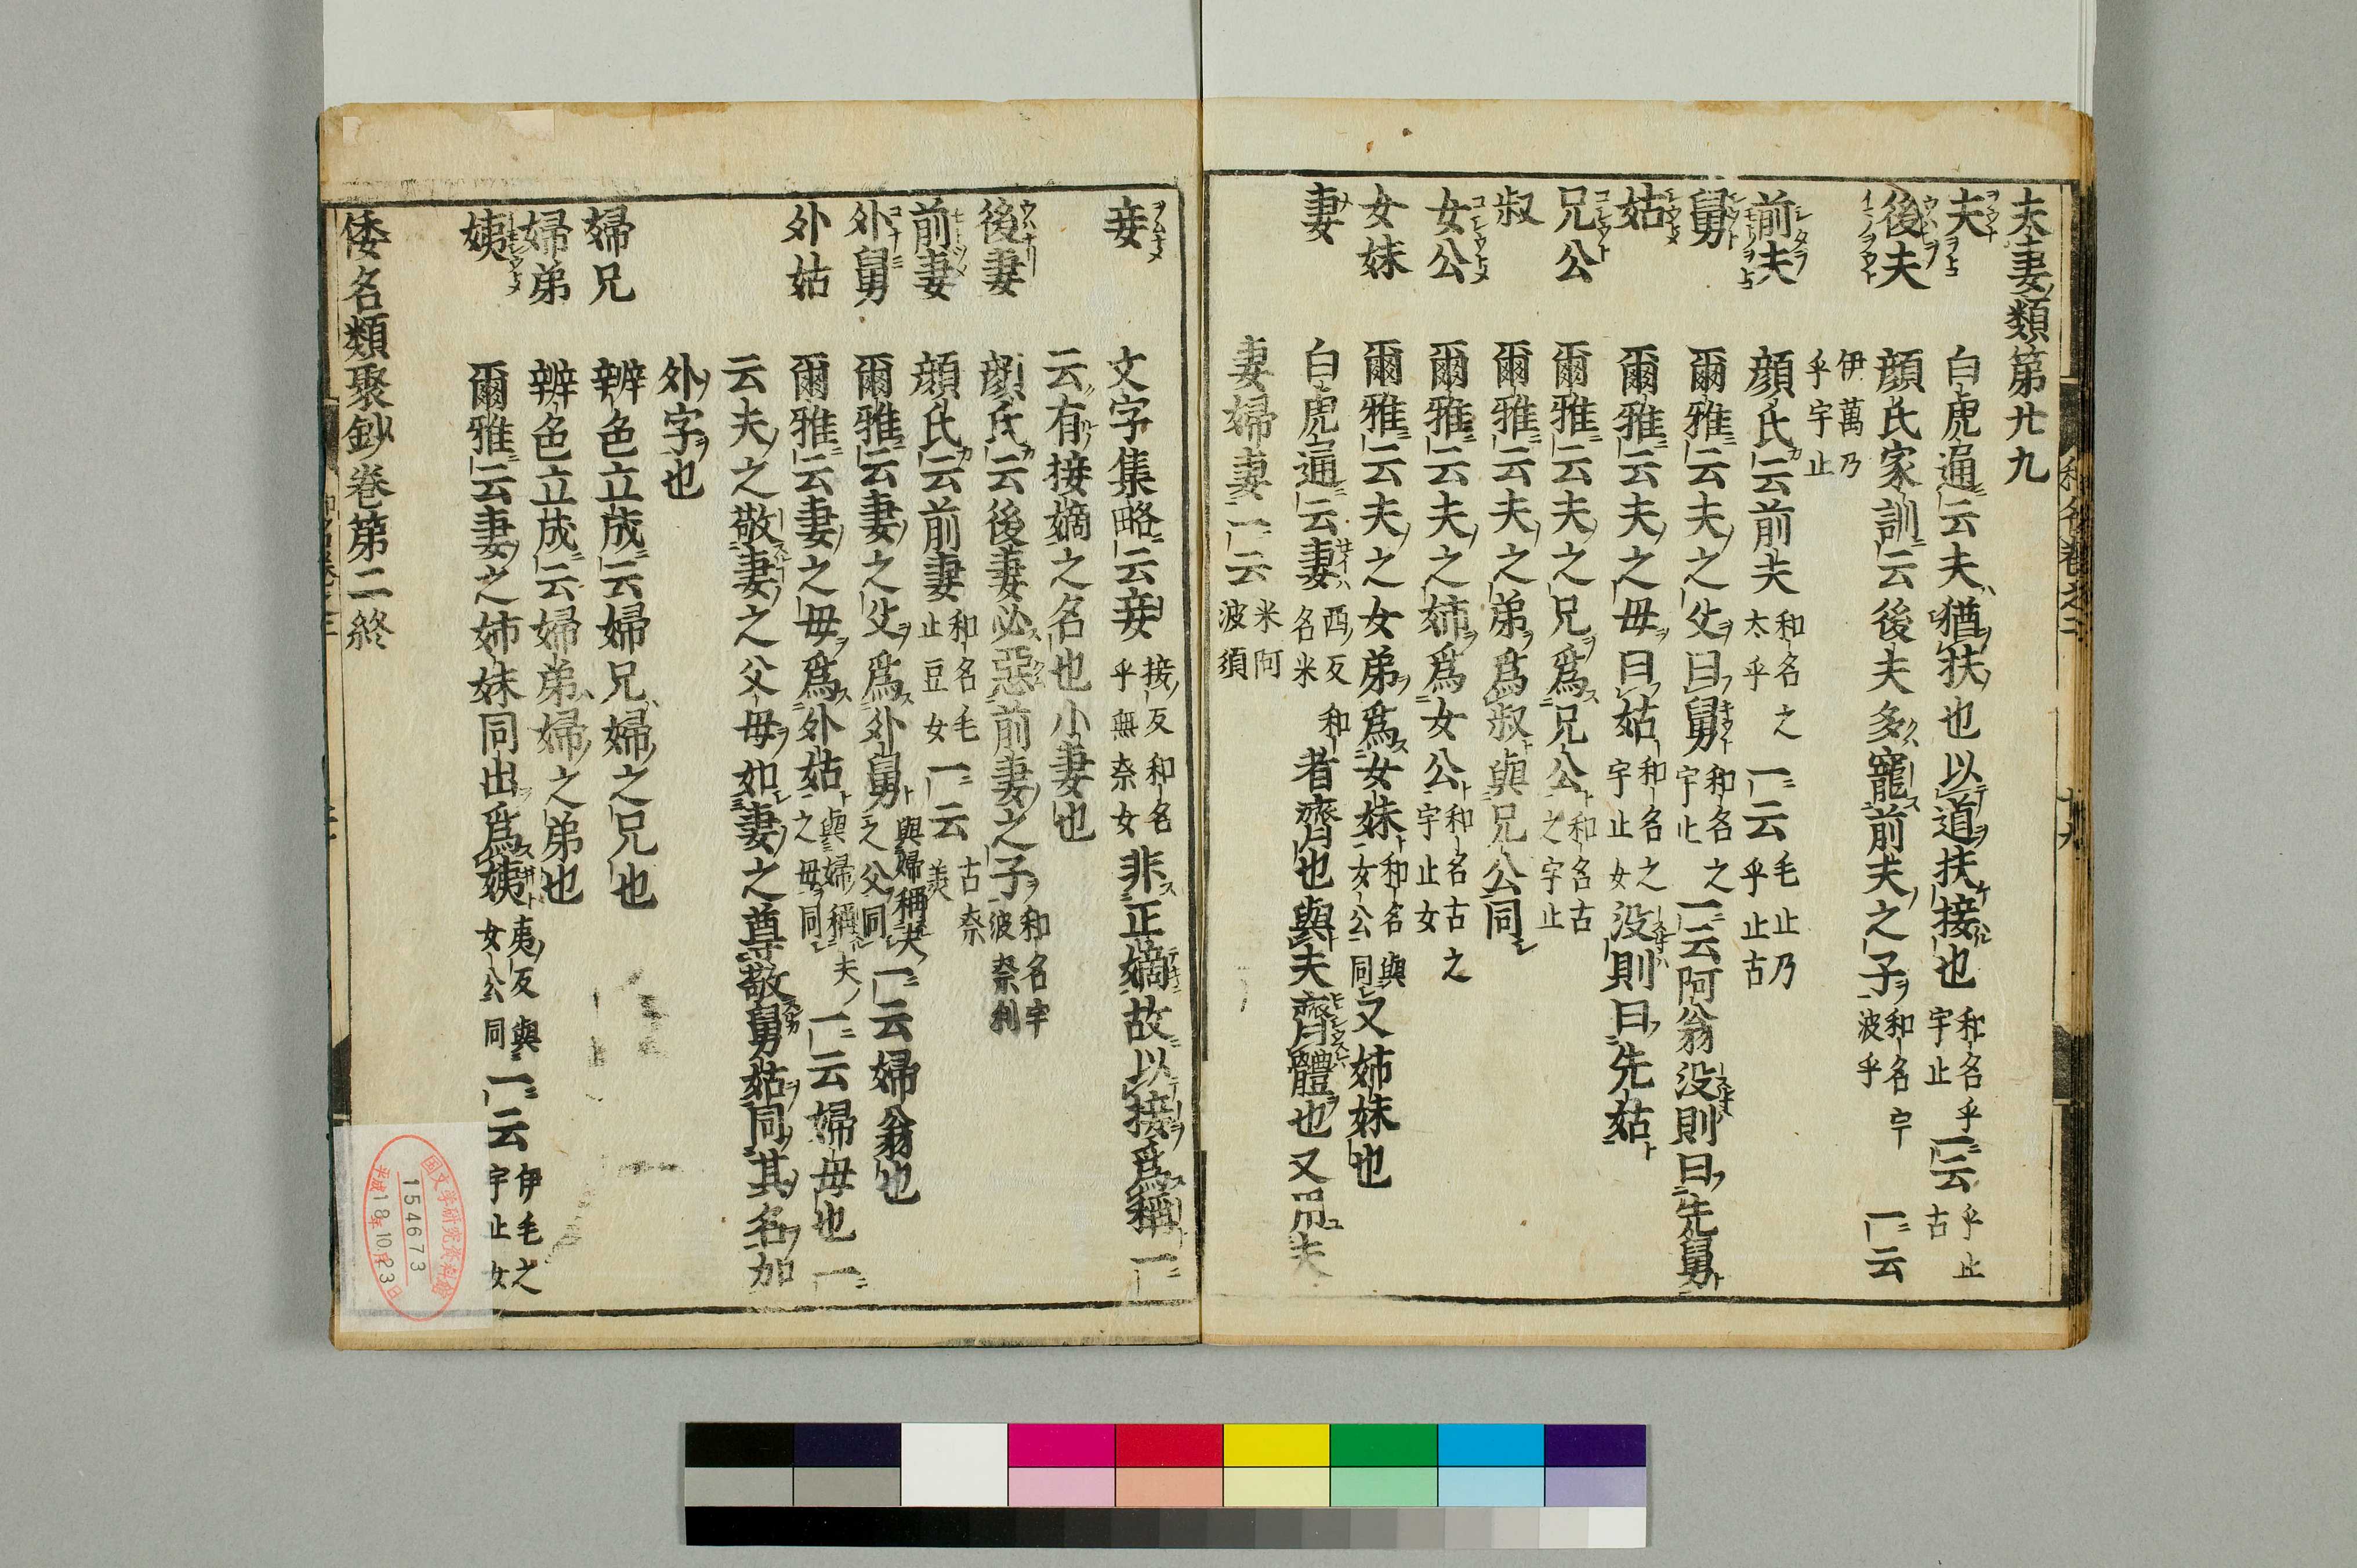 夫妻類第廿九
夫 白虎通云夫猶扶也以道扶接也和名乎宇止一云乎止古
後夫 顔氏家訓云後夫多寵前夫之子和名宇波乎一云
伊萬乃乎宇止
前夫 顔氏云前夫和名之太乎一云毛止乃乎止古
舅 爾雅云夫之父曰舅和名之宇止一云阿翁没則曰先舅
姑 爾雅云夫之母曰姑和名之宇止女没則曰先姑
兄公 爾雅云夫之兄爲兄公和名古之宇止
叔 爾雅云夫之弟爲叔與兄公同
女公 爾雅云夫之姉爲女公和名古之宇止女
女妹 爾雅云夫之女弟爲女妹和名與女公同又姉妹也
妻 白虎通云妻西反和名米者齊也與夫齊體也又用夫
妻婦妻一云米阿波須
妾 文字集略云妾接反和名乎無奈女非正嫡故以接爲稱一
云有接嫡之名也小妻也
後妻 顔氏云後妻必惡前妻之子和名宇波奈利
前妻 顔氏云前妻和名毛止豆女一云古奈美
外舅 爾雅云妻之父爲外舅與婦稱夫之父同一云婦翁也
外姑 爾雅云妻之母爲外姑與婦稱夫之母同一云婦母也一
云夫之敬妻之父母如妻之尊敬舅姑同其名加
外字也
婦兄 辨色立成云婦兄婦之兄也
婦弟 辨色立成云婦弟婦之弟也
姨 爾雅云妻之姉妹同出爲姨夷反與女公同一云伊毛之宇止女
倭名類聚鈔卷第二終
国文学研究資料館
154673
平成18年10月23日